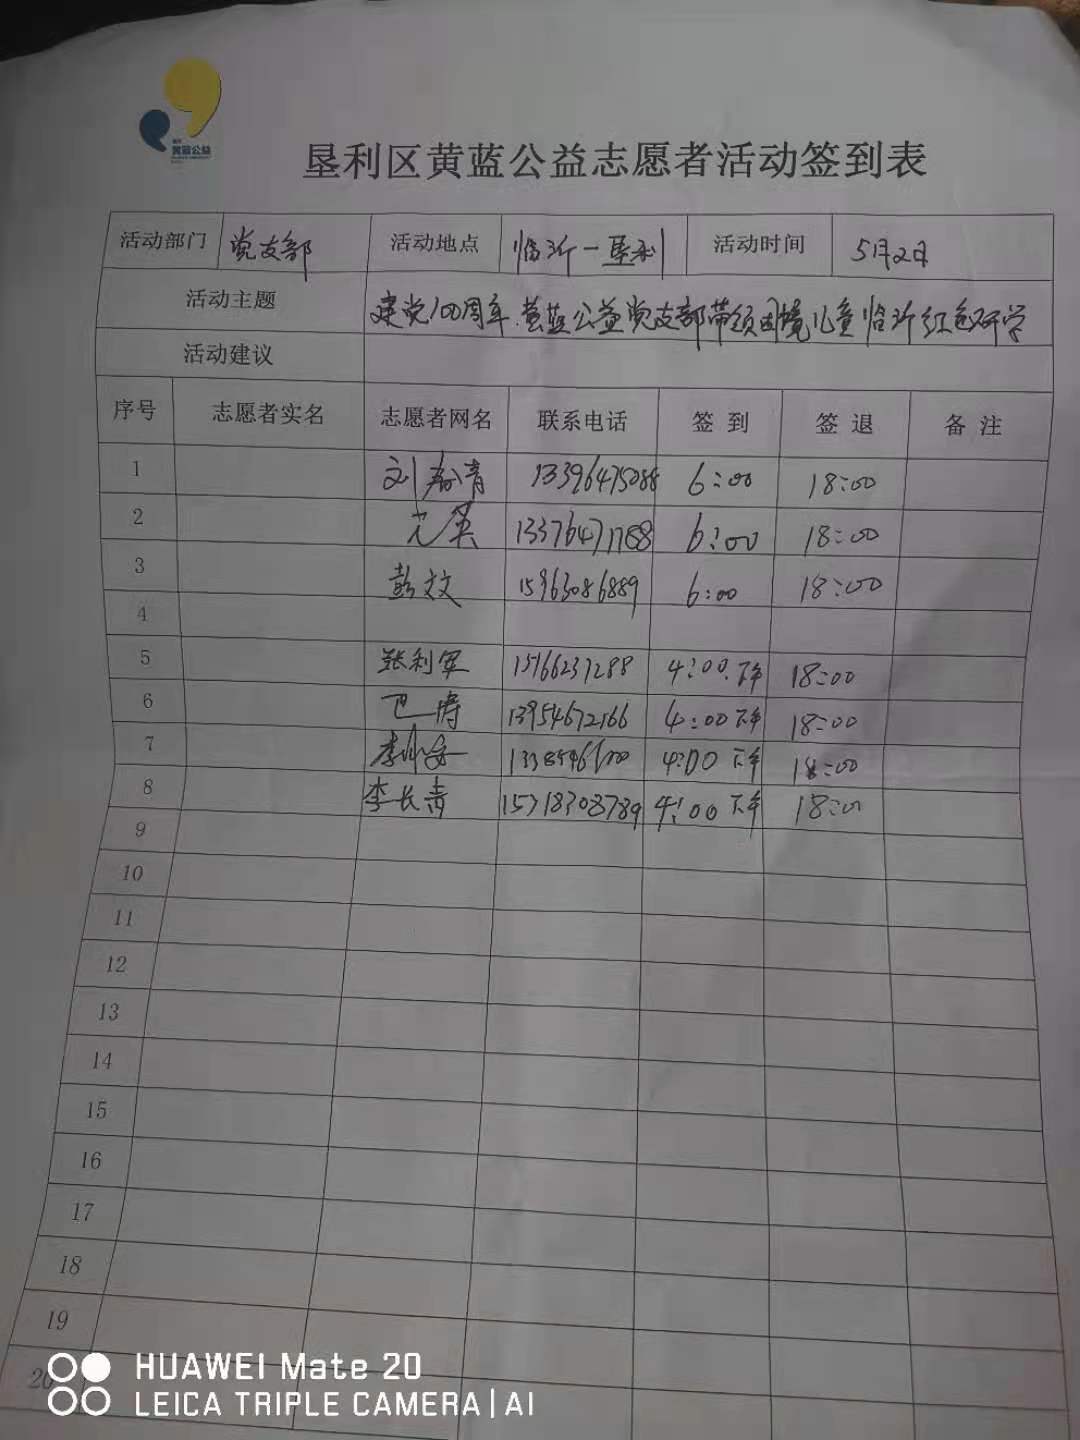 黄蓝公益
垦利区黄蓝公益志愿者活动签到表
活动部门 党支部 活动地点 临沂一垦利 活动时间 5月2日
活动主题 建党100周年.黄蓝公益党支部带领困境儿童临沂红色研学
活动建议
序号 志愿者实名 志愿者网名 联系电话 签到 签退 备注
1 刘春青 13396475088 6:00 18:00
2 光英 13376471788 6:00 18:00
3 彭文 15963086889 6:00 18:00
4
5 张利军 15766237288 4:00.下午 18:00
6 卫涛 13954672166 4:00下午 18:00
7 4:00下午 18:00
8 李长青 15718308789 4:00下午 18:00
9
10
11
12
13
14
15
16
17
18
19
20
HUAWEI Mate 20
LEICA TRIPLE CAMERA | AI